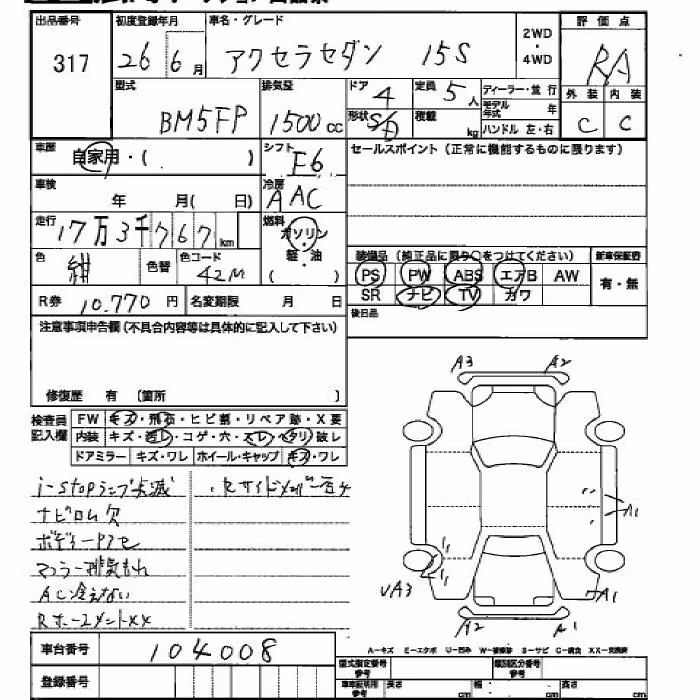 出品番号 初度登録年月 車名・グレード 2WD・4WD 評価点
317 26 6月 アクセラセダン 15S RA
型式 排気量 ドア 定員 ディーラー・並行 外装 内装
BM5FP 1500cc 4 5人 モデル年式 年 C C
形状 S/D 積載 kg ハンドル 左・右
車歴 自家用・( ) シフト F6 セールスポイント (正常に機能するものに限ります)
車検 年 月( 日) 冷房 AAC
走行 17万3千767km 燃料 ガソリン・軽・油 ( )
色 紺 色替 色コード 42M
装備品 (純正品に限り○をつけてください) 新車保証書
PS PW ABS エアB AW 有・無
SR ナビ TV カワ
R券 10.770円 名変期限 月 日
後日品
注意事項申告欄 (不具合内容等は具体的に記入して下さい)
修復歴 有 〔箇所 〕
A3 A2
検査員記入欄 FW キズ・飛石・ヒビ割・リペア跡・X要
内装 キズ・汚レ・コゲ・穴・スレ・ヘタリ・破レ
ドアミラー キズ・ワレ ホイール・キャップ キズ・ワレ
i-stopランプ点滅
ナビロム欠
A1
ボディーPアセ
マフラー排気もれ
AC冷えない
UA3 A1
A2 A1
A-キズ E-エクボ U-凹み W-補修跡 S-サビ C-腐食 XX-交換済
車台番号 104008
型式指定番号 参考 類別区分番号 参考
登録番号
車車証明用 参考 長さ cm 幅 cm 高さ cm